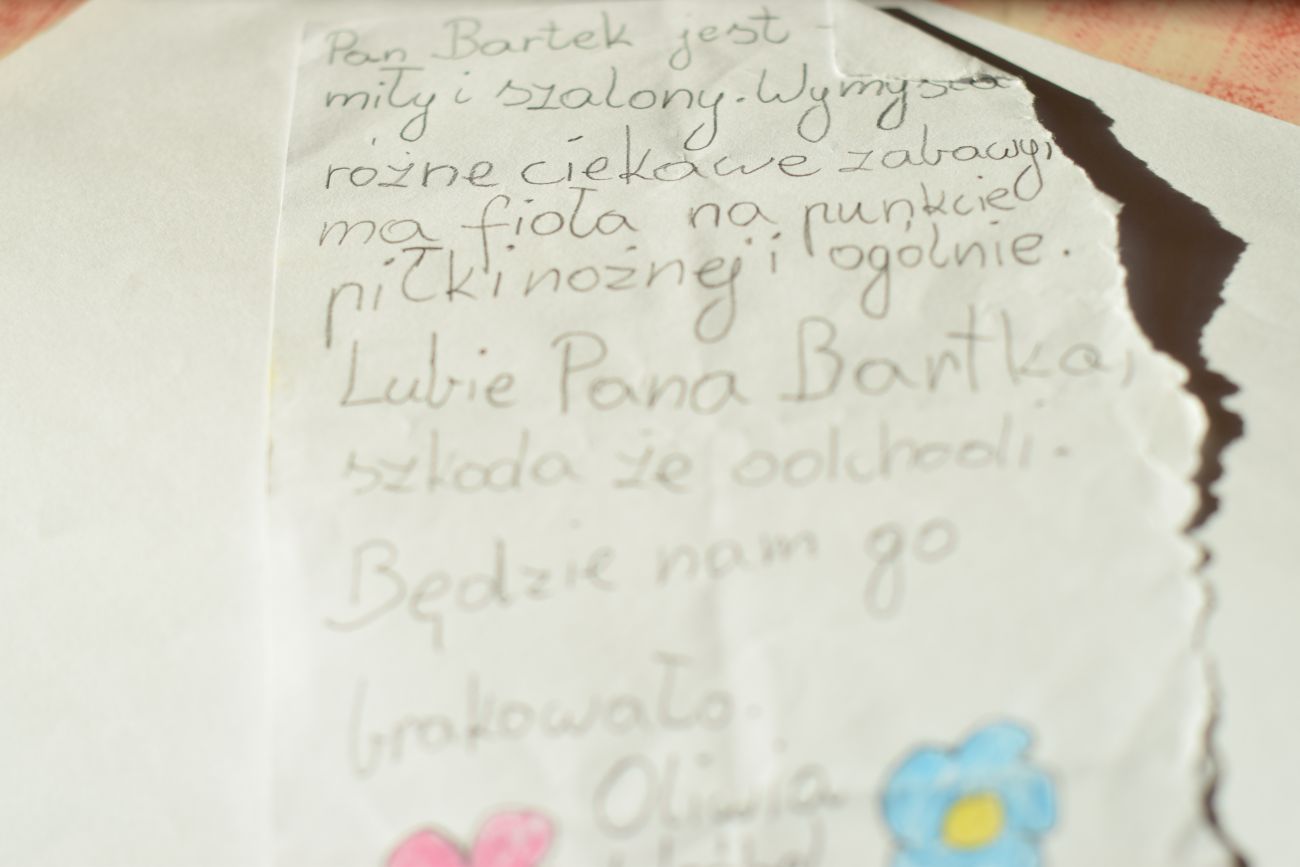 Pan Bartek jest -
miły i szalony. Wymyśla
różne ciekawe zabawy,
ma fioła na punkcie
piłki nożnej i ogólnie.
Lubie Pana Bartka,
szkoda że odchodzi.
Będzie nam go
brakowało.
Oliwia